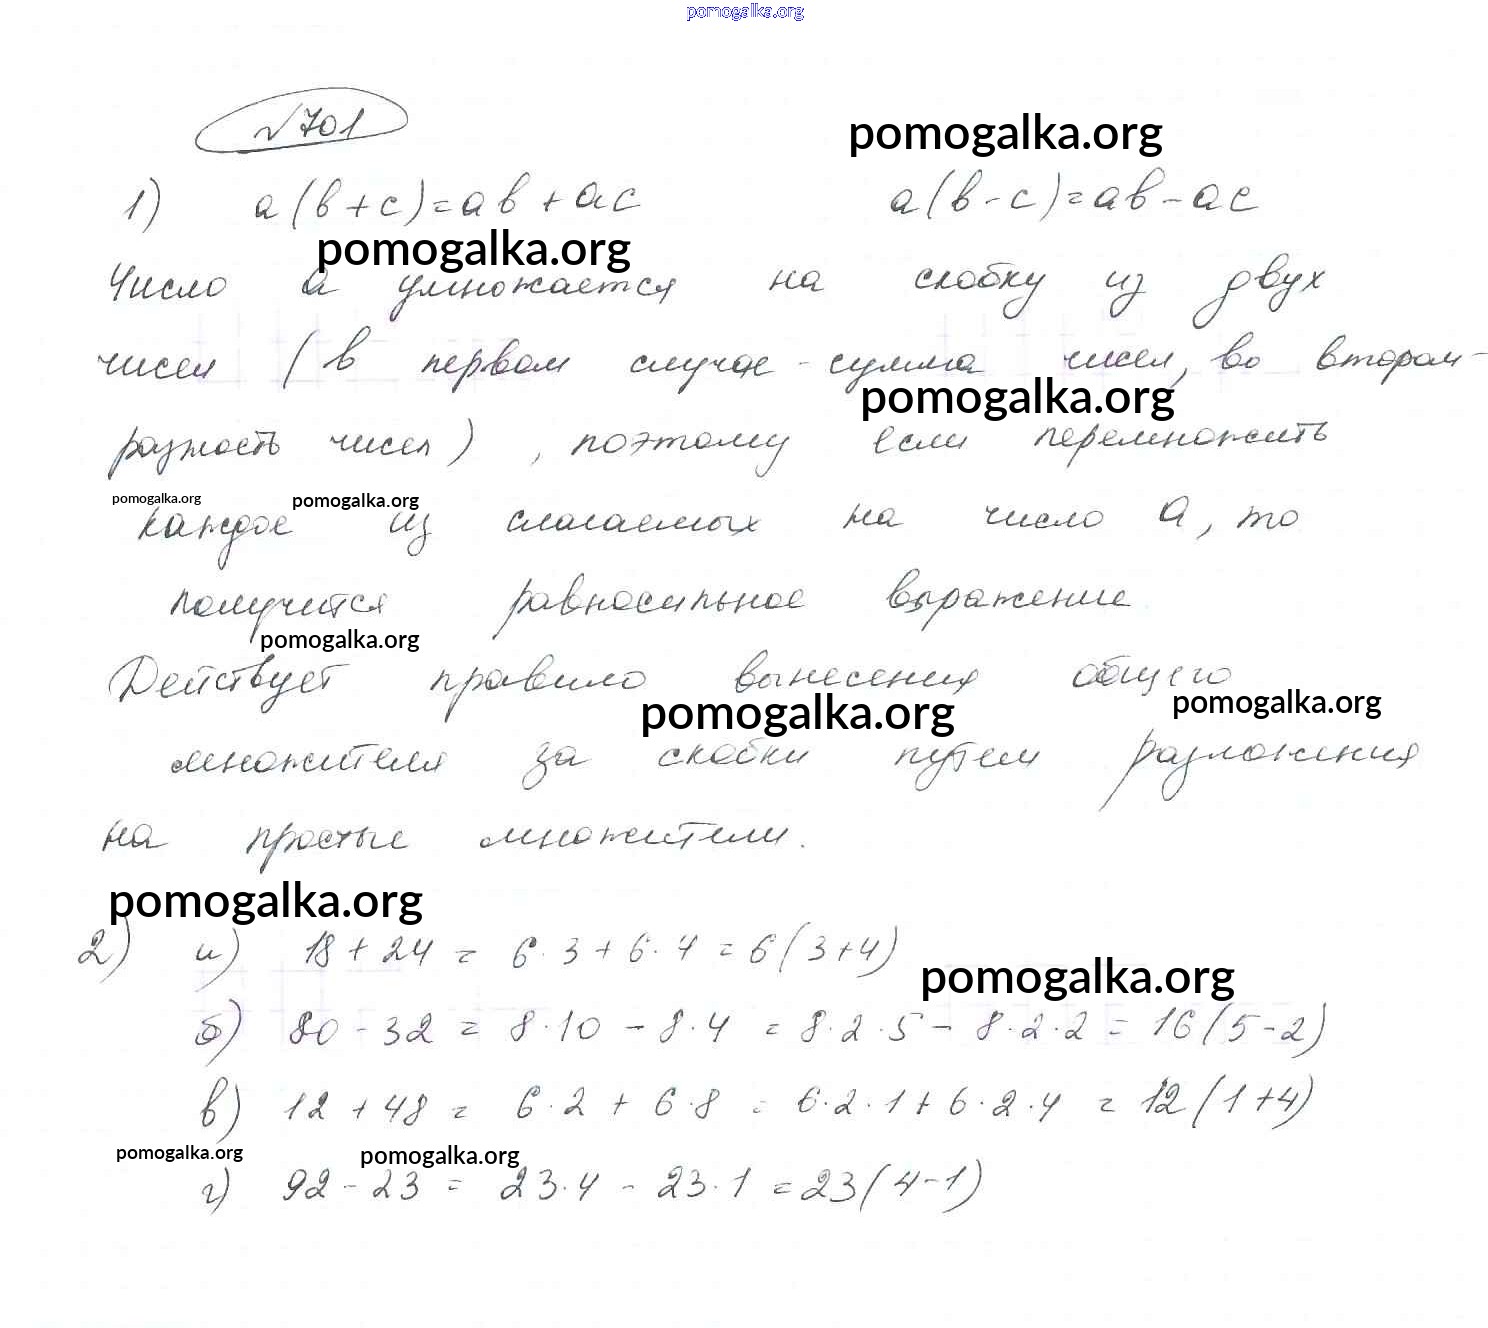 pomogalka.org
√701
pomogalka.org
1) a(b+c)=ab+ac a(b-c)=ab-ac
pomogalka.org
Число а умножается на скобку из двух
чисел (в первом случае - сумма чисел, во втором-
pomogalka.org
разность чисел), поэтому если перемножить
pomogalka.org pomogalka.org
каждое из слагаемых на число а, то
получится равносильное выражение.
pomogalka.org
Действует правило вынесения общего
pomogalka.org pomogalka.org
множителя за скобки путем разложения
на простые множители.
pomogalka.org
2) а) 18 + 24 = 6·3 + 6·4 = 6(3+4)
pomogalka.org
б) 80 - 32 = 8·10 - 8·4 = 8·2·5 - 8·2·2 = 16(5-2)
в) 12 + 48 = 6·2 + 6·8 = 6·2·1 + 6·2·4 = 12(1+4)
pomogalka.org pomogalka.org
г) 92 - 23 = 23·4 - 23·1 = 23(4-1)